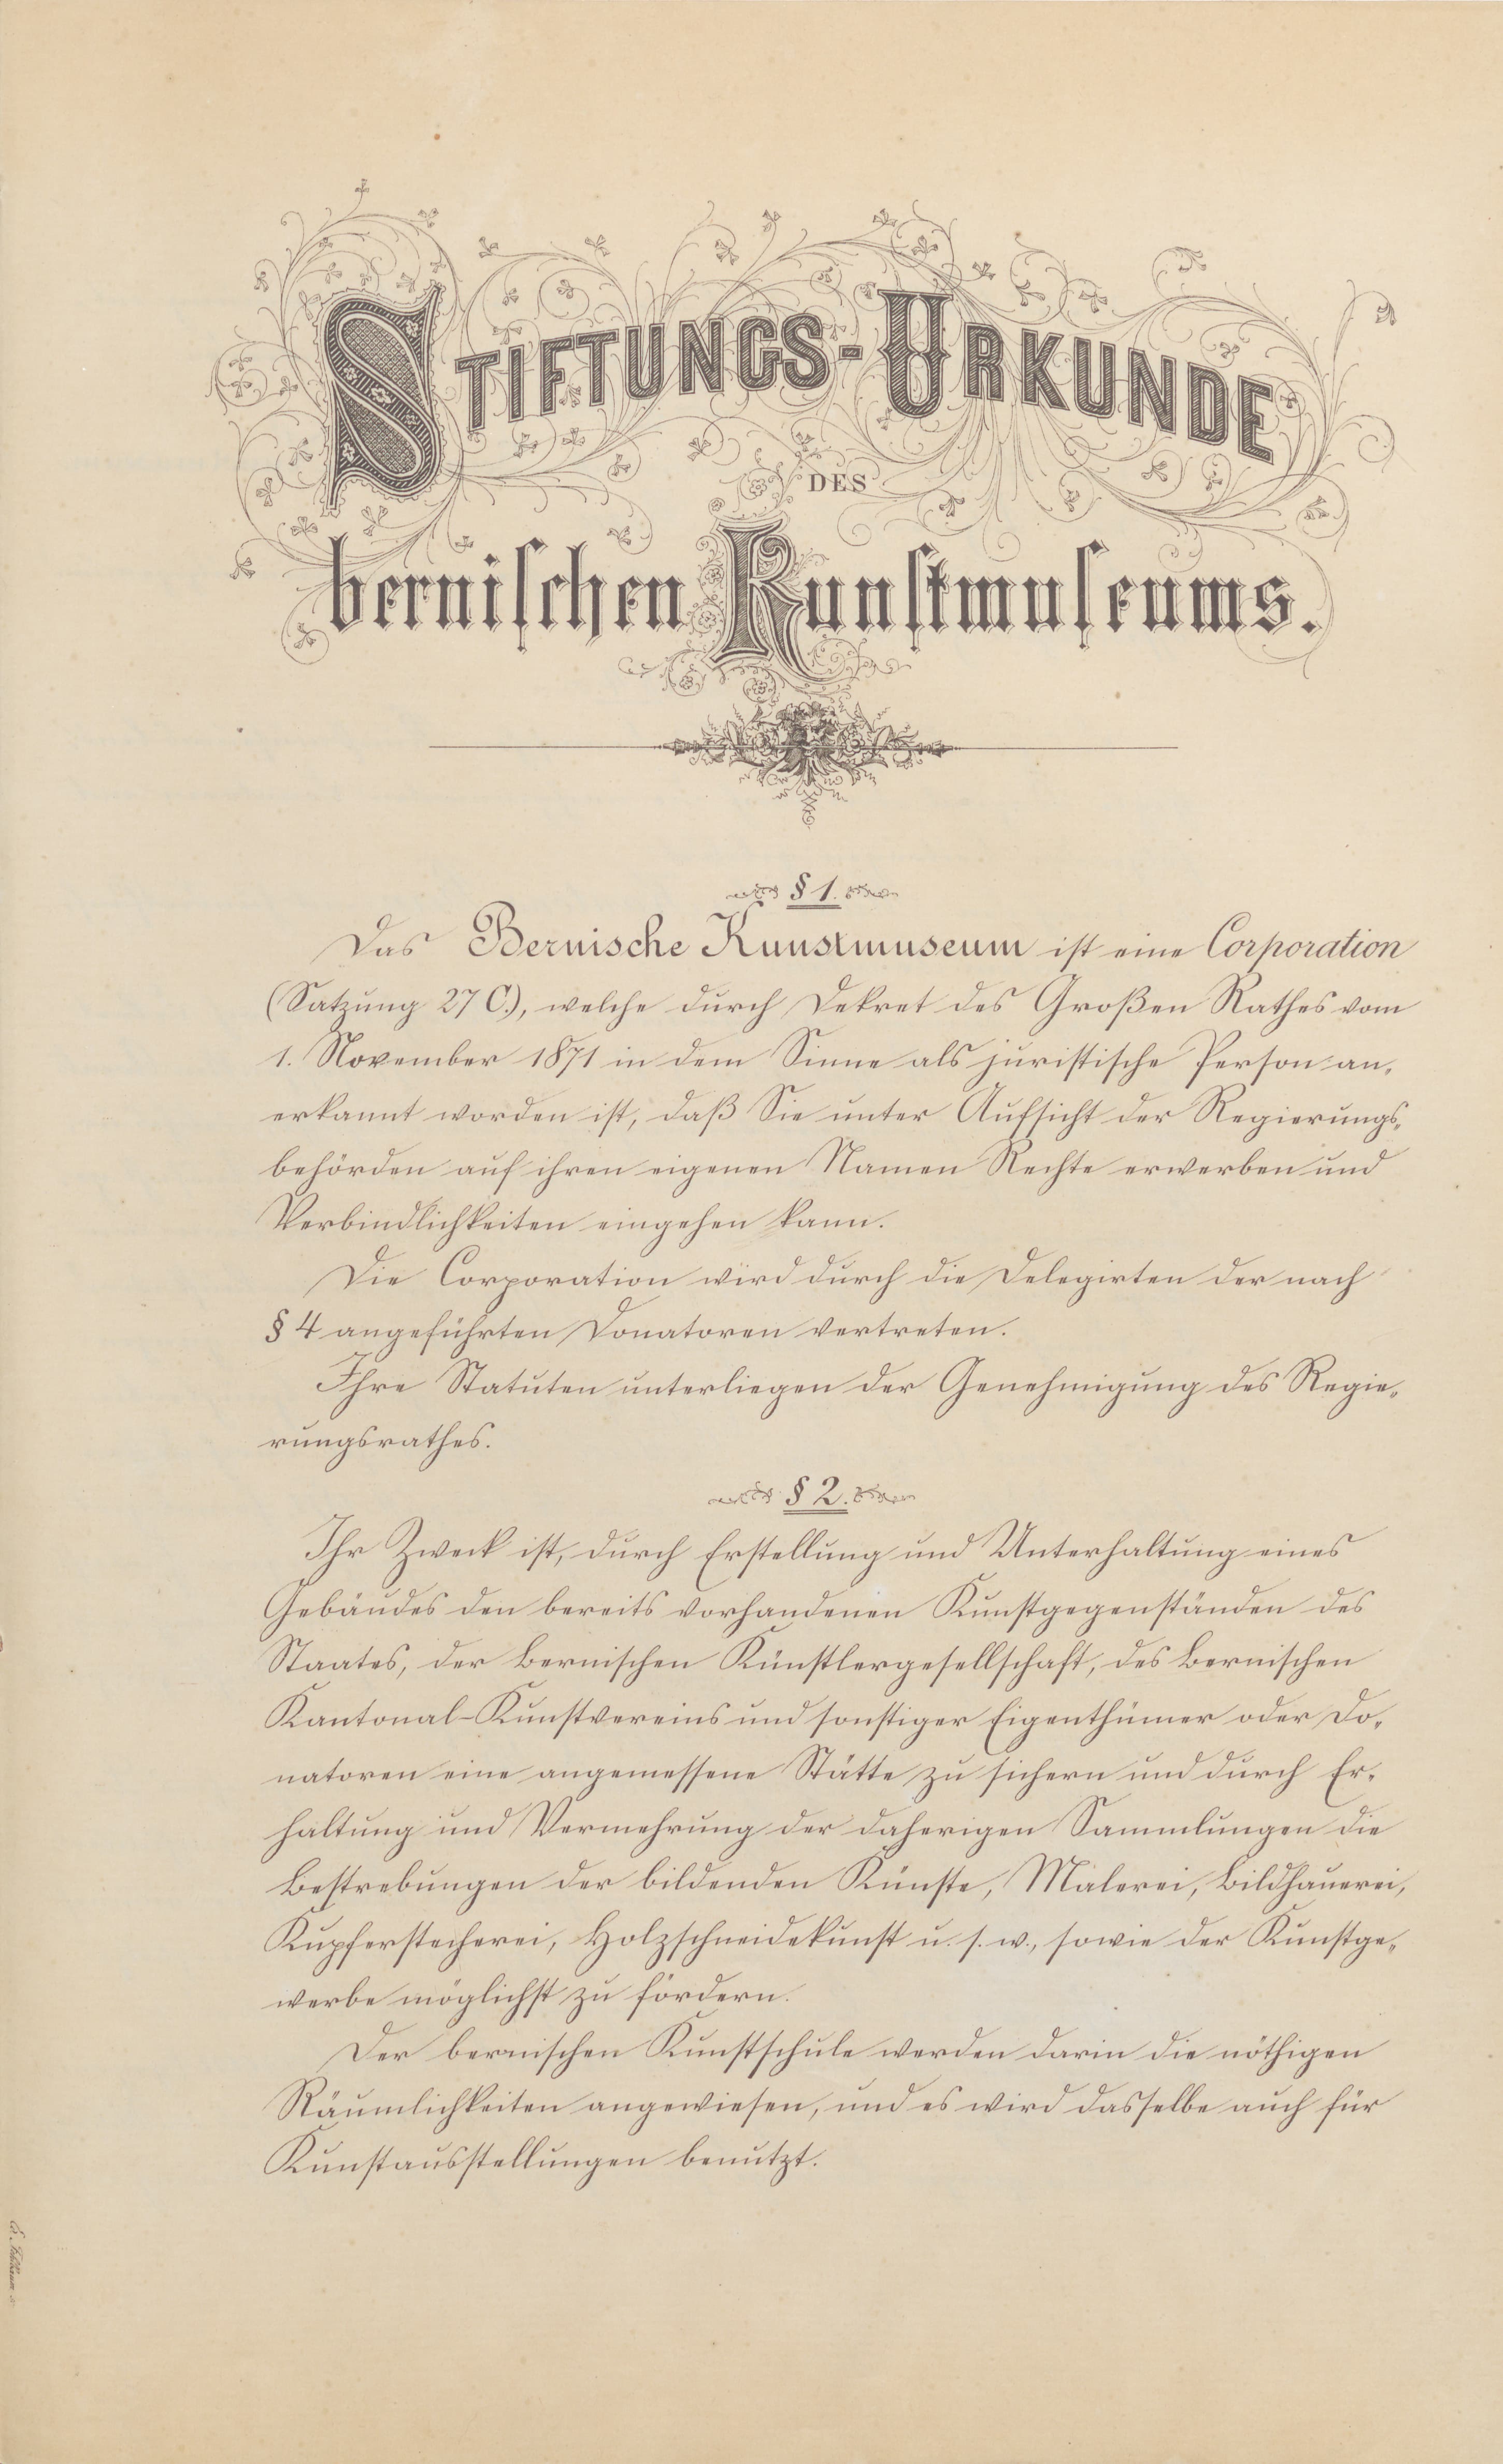 STIFTUNGS-URKUNDE
DES
bernischen Kunstmuseums.
§ 1.
Das Bernische Kunstmuseum ist eine Corporation
(Satzung 27 C.), welche durch Dekret des Großen Rathes vom
1. November 1871 in dem Sinne als juristische Person an-
erkannt worden ist, daß Sie unter Aufsicht der Regierungs-
behörden auf ihren eigenen Namen Rechte erwerben und
Verbindlichkeiten eingehen kann.
Die Corporation wird durch die Delegirten der nach
§ 4 angeführten Donatoren vertreten.
Ihre Statuten unterliegen der Genehmigung des Regie-
rungsrathes.
§ 2.
Ihr Zweck ist, durch Erstellung und Unterhaltung eines
Gebäudes den bereits vorhandenen Kunstgegenständen des
Staates, der Bernischen Künstlergesellschaft, des Bernischen
Kantonal-Kunstvereins und sonstiger Eigenthümer oder Do-
natoren eine angemessene Stätte zu sichern und durch Er-
haltung und Vermehrung der daherigen Sammlungen die
Bestrebungen der bildenden Künste, Malerei, Bildhauerei,
Kupferstecherei, Holzschneidekunst u. s. w., sowie der Kunstge-
werbe möglichst zu fördern.
Der bernischen Kunstschule werden darin die nöthigen
Räumlichkeiten angewiesen, und es wird dasselbe auch für
Kunstausstellungen benutzt.